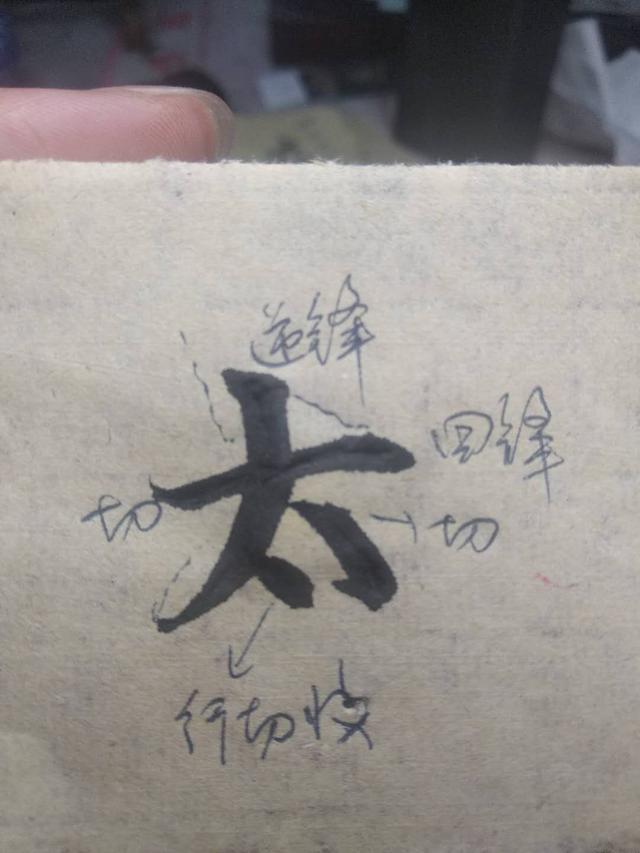 逆锋
太
回锋
切
切
行切收